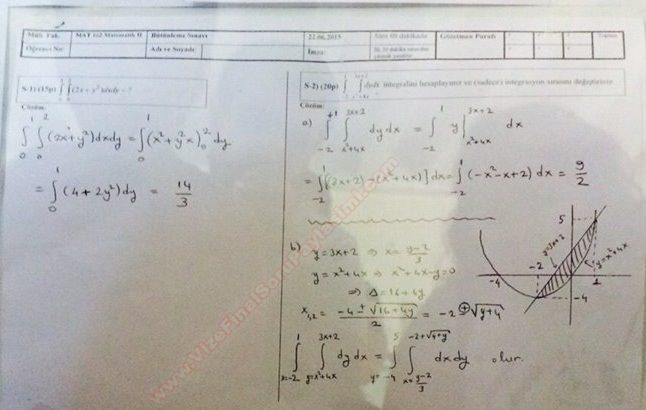 Müh. Fak. MAT 162 Matematik II Bütünleme Sınavı 22.06.2015 Süre 60 dakikadır Gözetmen Parafı
Öğrenci No: Adı ve Soyadı: İmza:
S-1) (15p) ∫∫(2x + y²)dxdy = ?
Çözüm:
∫₀¹ ∫₀² (2x+y²)dxdy = ∫₀¹ (x²+y²x)₀² dy
= ∫₀¹ (4+2y²)dy = 14/3
S-2) (20p) ∫∫ dydx integralini hesaplayınız ve (sadece) integrasyon sırasını değiştiriniz.
Çözüm:
a) ∫₋₂¹ ∫_{x²+4x}^{3x+2} dy dx = ∫₋₂¹ y|_{x²+4x}^{3x+2} dx
= ∫₋₂¹ [(3x+2)-(x²+4x)] dx = ∫₋₂¹ (-x²-x+2) dx = 9/2
b) y=3x+2 ⇒ x= (y-2)/3
y=x²+4x ⇒ x²+4x-y=0
⇒ Δ=16+4y
x₁,₂ = (-4±√(16+4y))/2 = -2 ± √(y+4)
∫_{x=-2}^{1} ∫_{y=x²+4x}^{3x+2} dy dx = ∫_{y=-4}^{5} ∫_{x=(y-2)/3}^{-2+√(4+y)} dx dy olur.
5
y=3x+2
y=x²+4x
-4
-2
1
-4
www.VizeFinalSoruPaylasimi.com